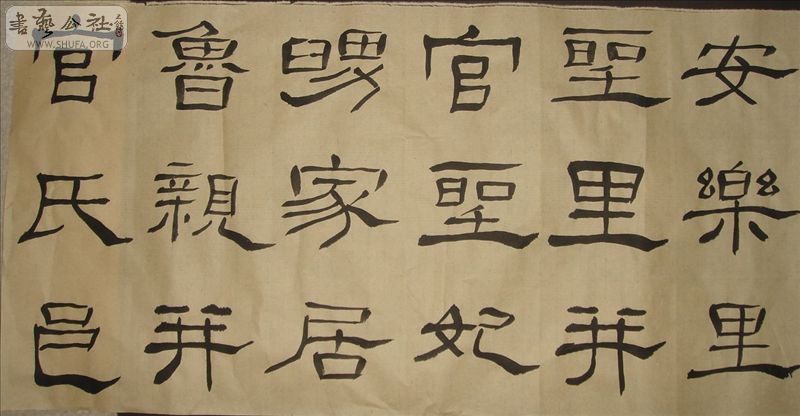 書藝公社
WWW.SHUFA.ORG
安樂里
聖里并
官聖妃
舅家居
魯親并
官氏邑